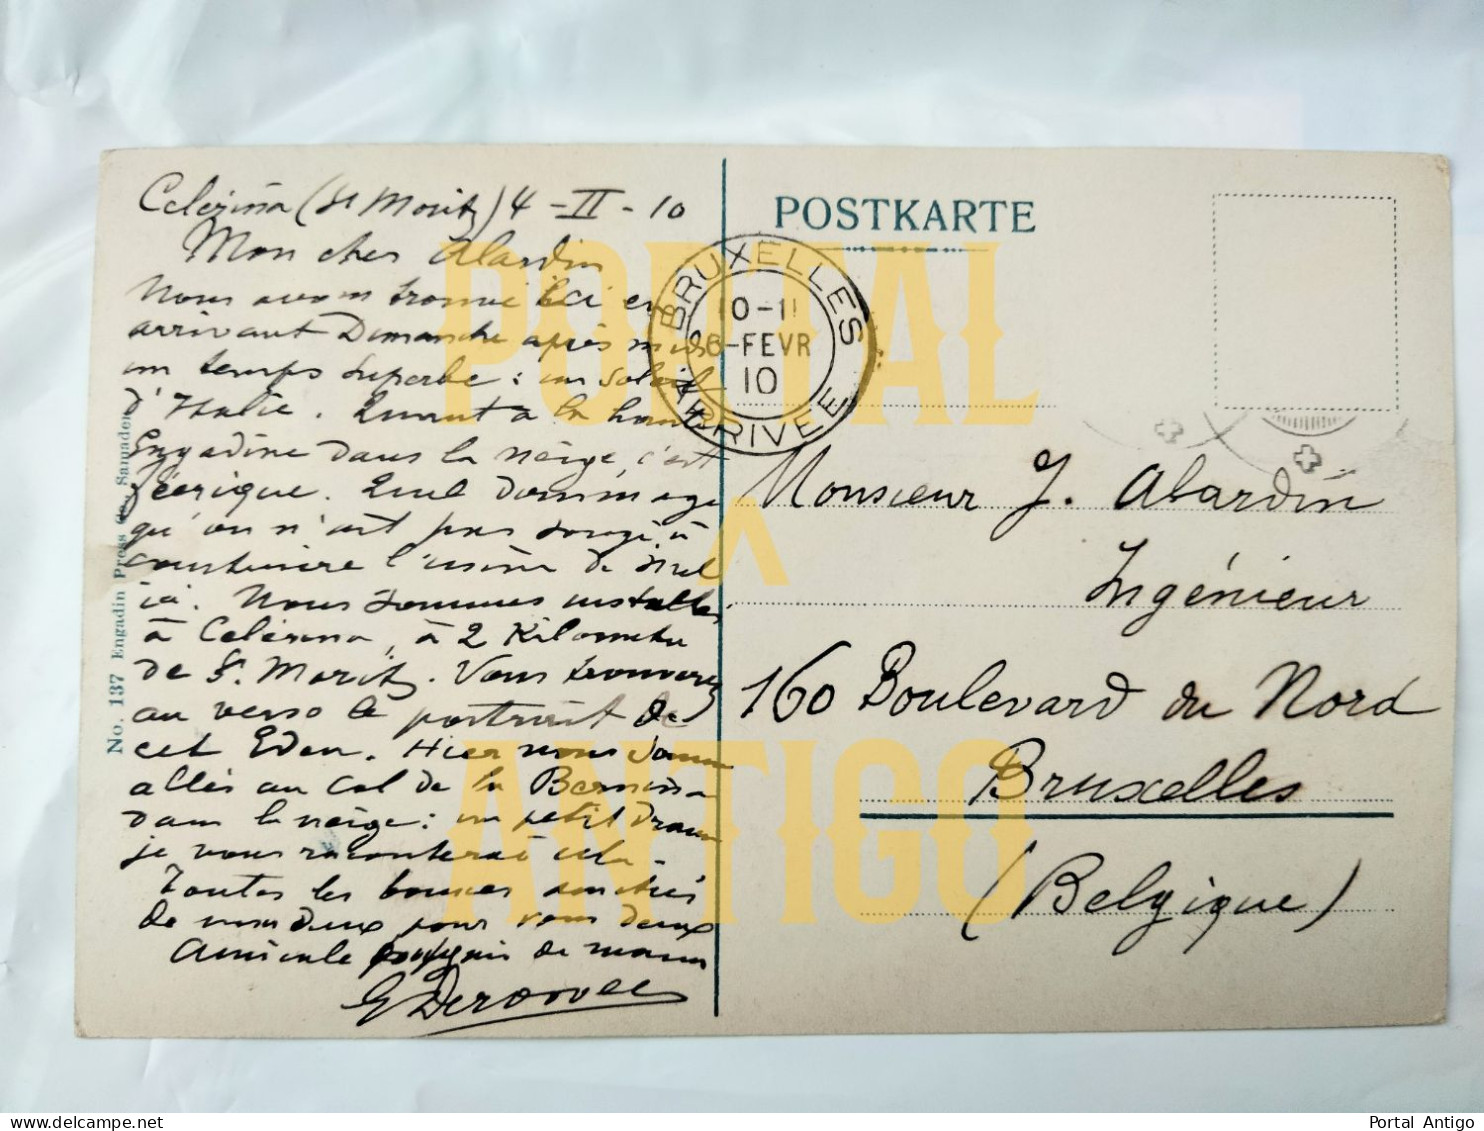 Celerina (St Moritz) 4-II-10
Mon cher Alardin
Nous avons trouvé ici en
arrivant Dimanche après midi
un temps superbe : un soleil
d'Italie. Quant à la haute
Engadine dans la neige, c'est
féerique. Quel dommage
qu'on n'ait pas songé à
construire l'usine de
ici. Nous sommes installés
à Celerina, à 2 Kilomètres
de St. Moritz. Vous trouverez
au verso le portrait de
cet Eden. Hier nous sommes
allés au Col de la Bernina
dans la neige : un petit drame
je vous raconterai cela.
Toutes les bonnes amitiés
de nous deux pour vous deux
Amicale poignée de main
No. 137 Engadin Press Co., Samaden
POSTKARTE
BRUXELLES
10-11
6-FEVR
10
ARRIVEE
Monsieur J. Alardin
Ingénieur
160 Boulevard du Nord
Bruxelles
(Belgique)
PORTAL
A
ANTIGO
Portal Antigo